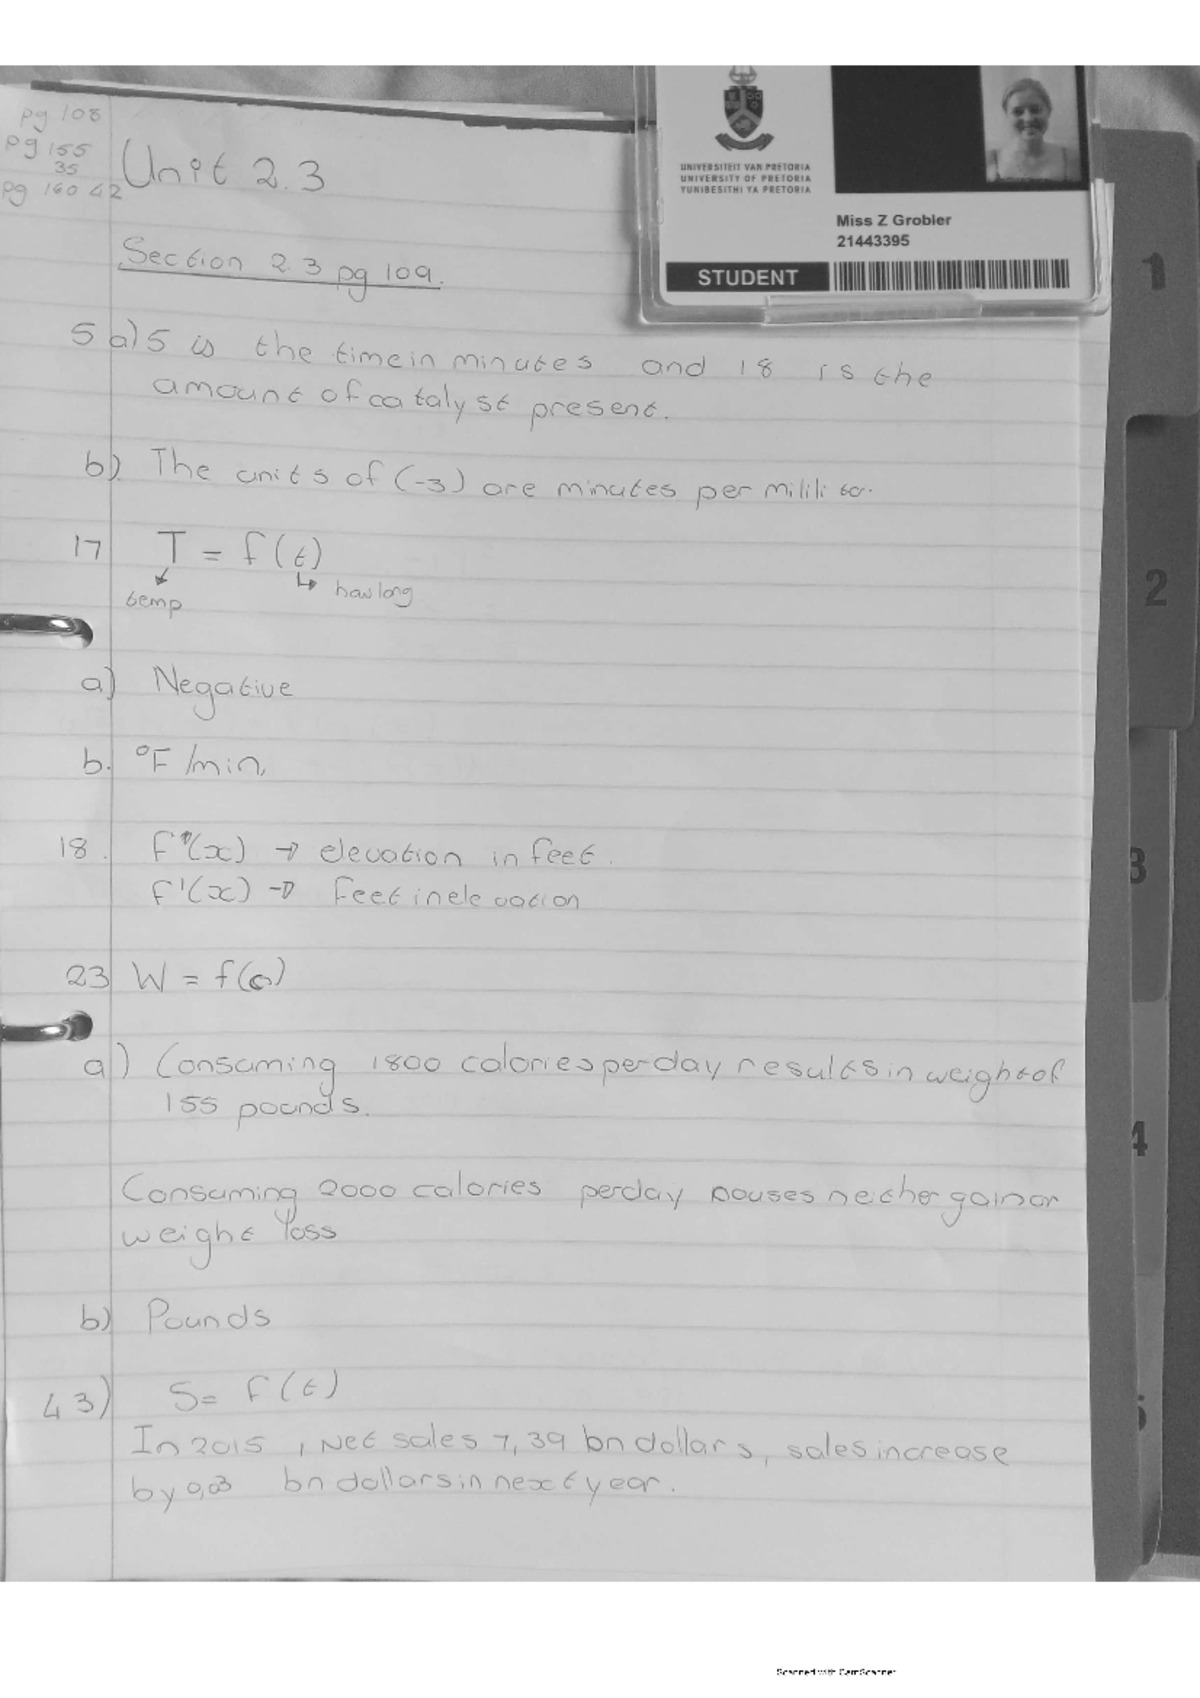 pg 108
pg 155
35
pg 160 42
Unit 2.3
UNIVERSITEIT VAN PRETORIA
UNIVERSITY OF PRETORIA
YUNIBESITHI YA PRETORIA
Miss Z Grobler
21443395
STUDENT
Section 2.3 pg 109.
5 a) 5 is the time in minutes and 18 is the
amount of catalyst present.
b) The units of (-3) are minutes per
17 T = f(t)
temp how long
a) Negative
b. °F/min,
18. f(x) → elevation in feet.
f'(x) → feet in elevation
23 W = f(c)
a) Consuming 1800 calories per day results in weight of
155 pounds.
Consuming 2000 calories per day causes neither gain or
weight loss
b) Pounds
43) S = f(t)
In 2015, Net sales 7,39 bn dollars, sales increase
by 0,03 bn dollars in next year.
1
2
3
4
5
Scanned with CamScanner